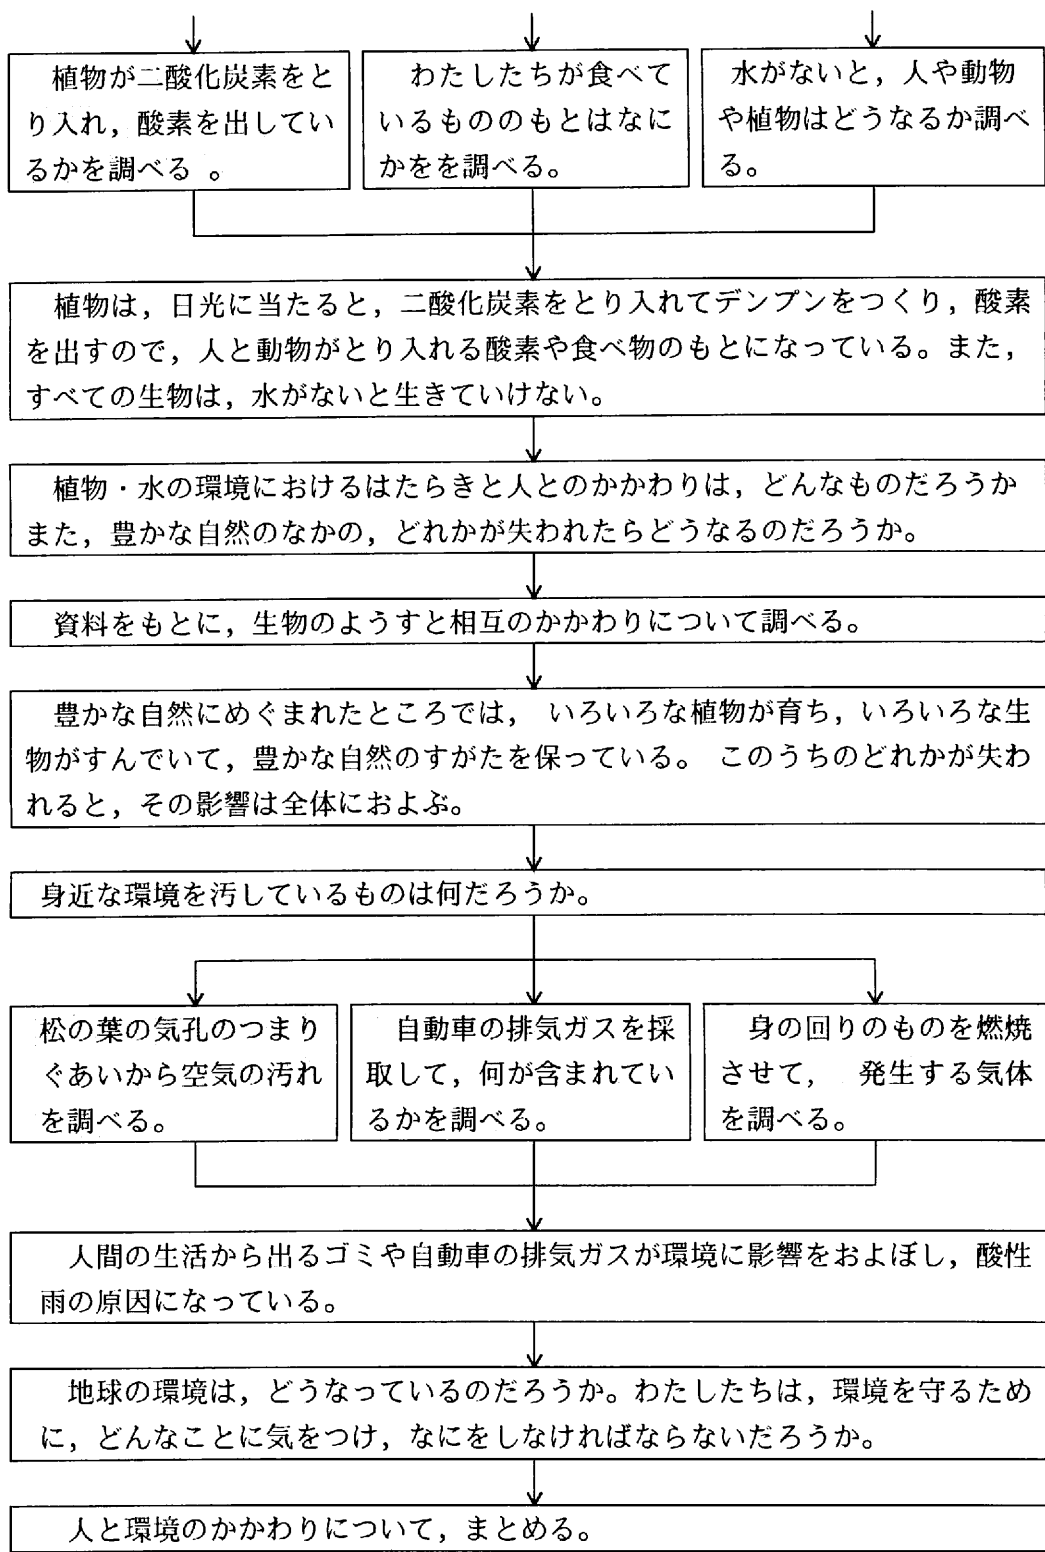 植物が二酸化炭素をと
り入れ，酸素を出してい
るかを調べる 。
わたしたちが食べて
いるもののもとはなに
かをを調べる。
水がないと，人や動物
や植物はどうなるか調べ
る。
植物は，日光に当たると，二酸化炭素をとり入れてデンプンをつくり，酸素
を出すので，人と動物がとり入れる酸素や食べ物のもとになっている。また，
すべての生物は，水がないと生きていけない。
植物・水の環境におけるはたらきと人とのかかわりは，どんなものだろうか
また，豊かな自然のなかの，どれかが失われたらどうなるのだろうか。
資料をもとに，生物のようすと相互のかかわりについて調べる。
豊かな自然にめぐまれたところでは， いろいろな植物が育ち，いろいろな生
物がすんでいて，豊かな自然のすがたを保っている。 このうちのどれかが失わ
れると，その影響は全体におよぶ。
身近な環境を汚しているものは何だろうか。
松の葉の気孔のつまり
ぐあいから空気の汚れ
を調べる。
自動車の排気ガスを採
取して，何が含まれてい
るかを調べる。
身の回りのものを燃焼
させて， 発生する気体
を調べる。
人間の生活から出るゴミや自動車の排気ガスが環境に影響をおよぼし，酸性
雨の原因になっている。
地球の環境は，どうなっているのだろうか。わたしたちは，環境を守るため
に，どんなことに気をつけ，なにをしなければならないだろうか。
人と環境のかかわりについて，まとめる。